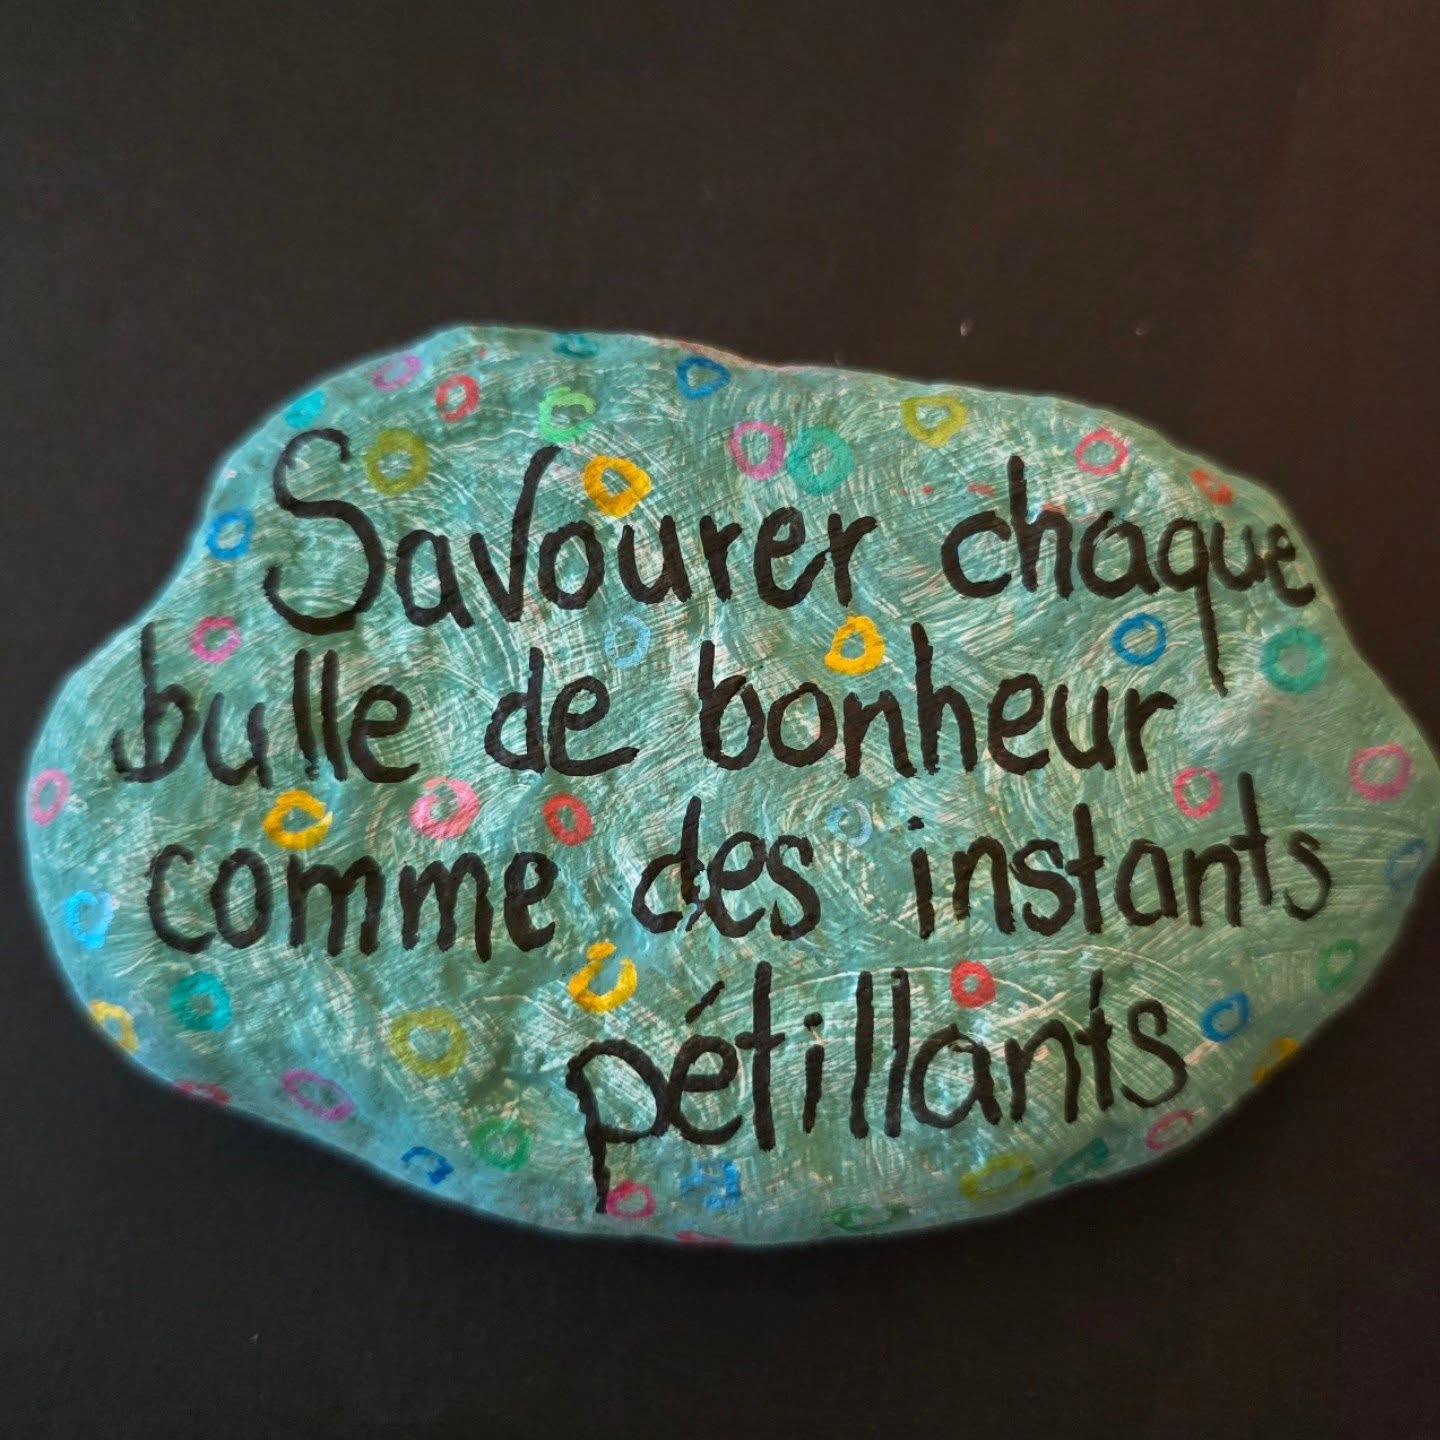 Savourer chaque
bulle de bonheur
comme des instants
pétillants